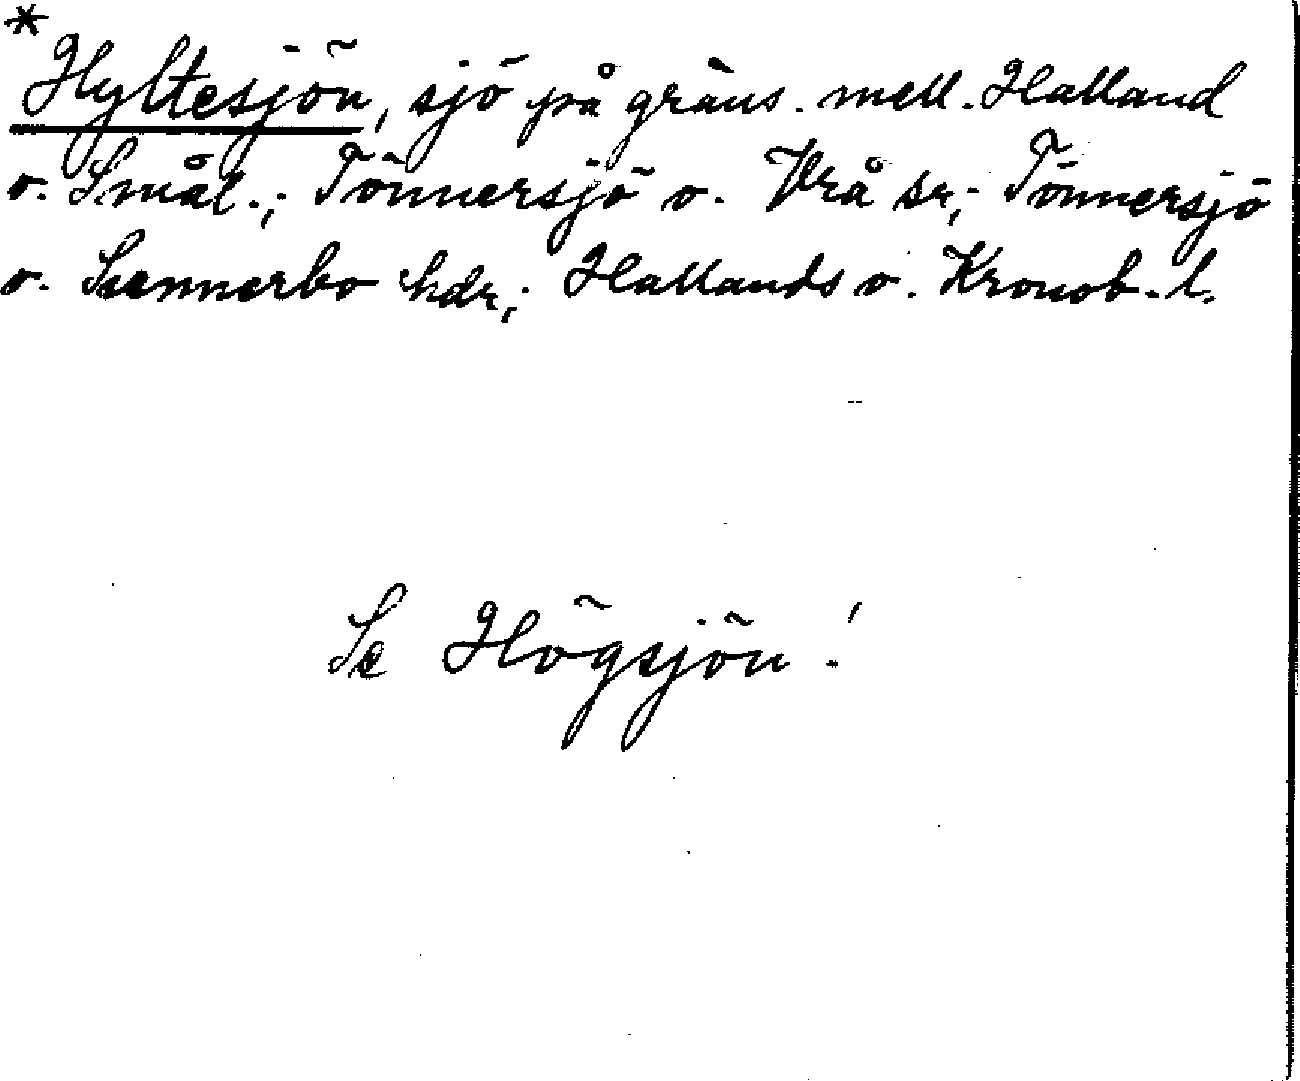 *
Hyltesjön, sjö på gräns. mell. Halland
o. Smål.; Tönnersjö o. Vrå sr; Tönnersjö
o. Sunnerbo hdr; Hallands o. Kronob. l.
Se Högsjön!